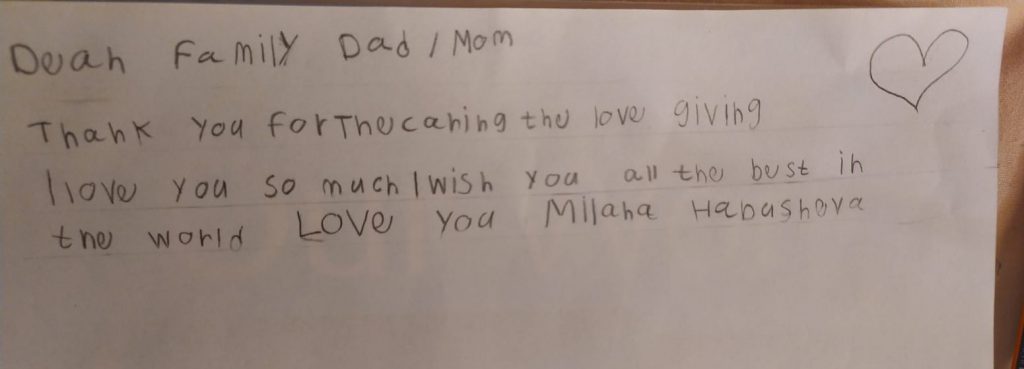 Dear Family Dad / Mom
Thank you for The caring the love giving
I love you so much I wish you all the best in
the world Love you Milana Habashova